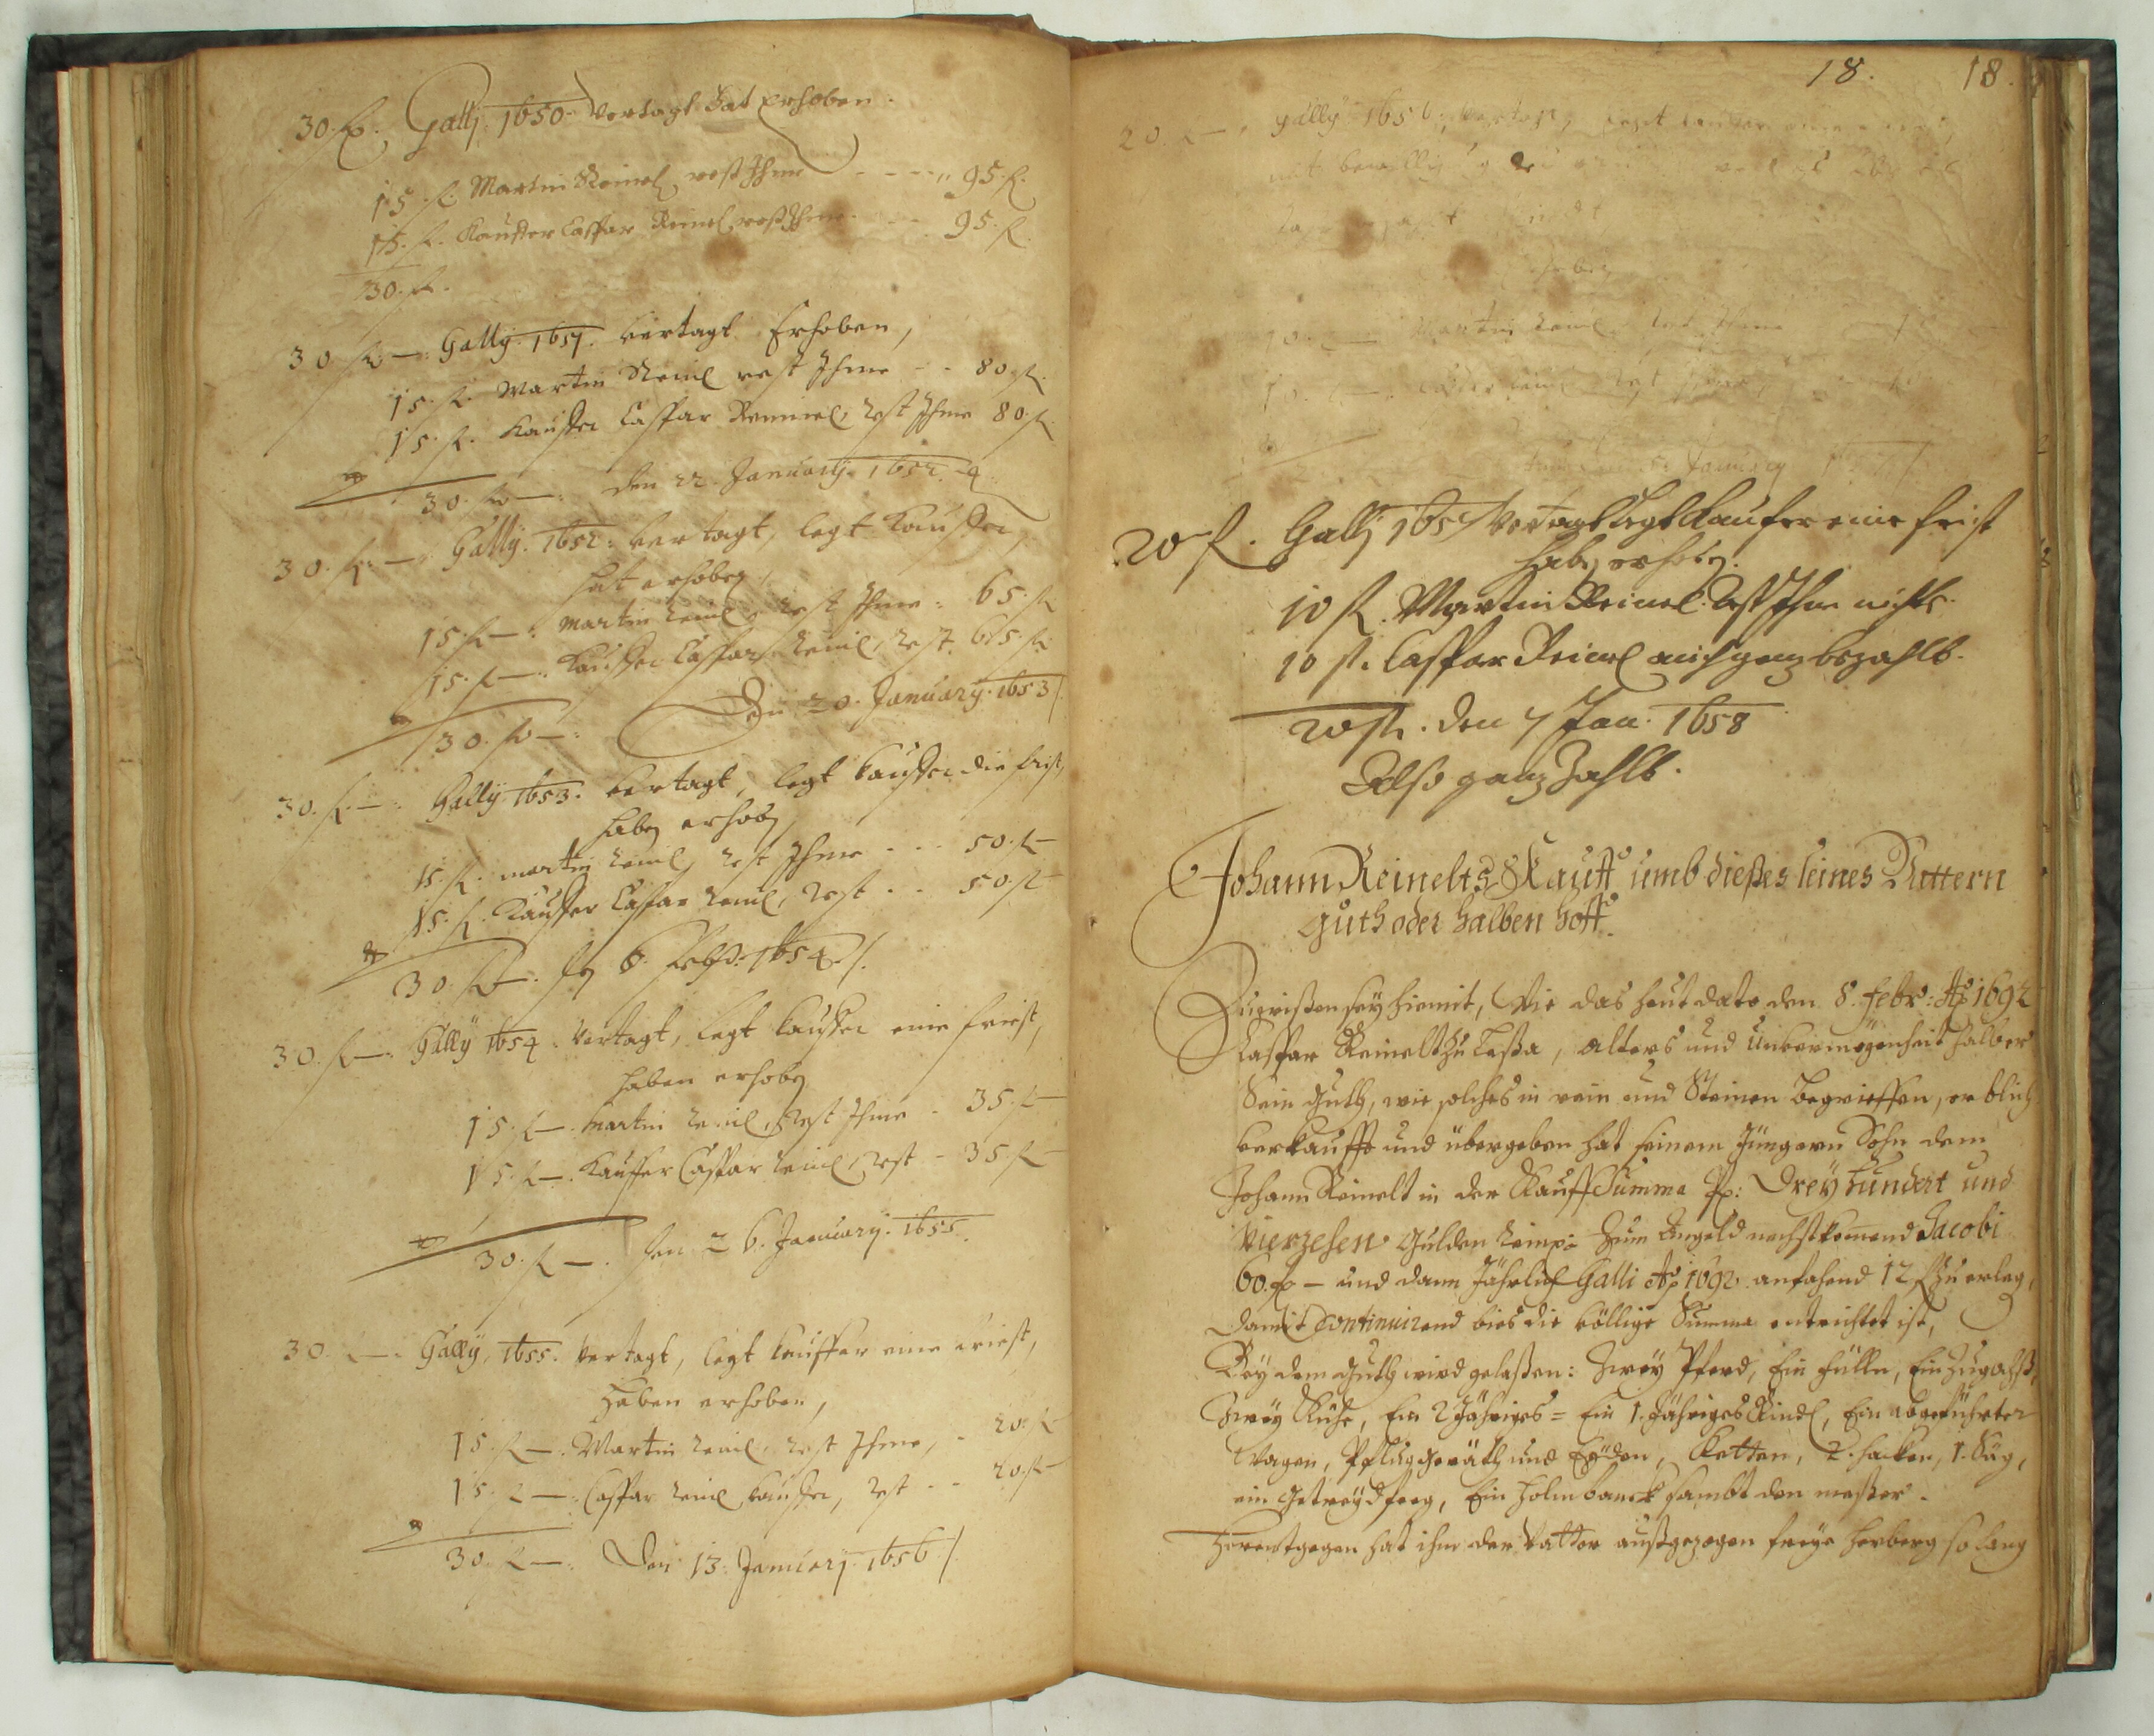 30 fl. Gallj 1650 Vertagt hat Erhoben.
15 fl. Martin Reinel, rest Ihme - - - 95 fl.
15 fl. Kauffer Caspar Reinel, rest Ihme - - 95 fl.
30 fl.
30 fl — Gally 1651. vertagt Erhoben,
15 fl. Martin Reinel rest Ihme - - 80 fl.
15 fl. Kauffer Caspar Reinel, Rest Ihme 80 fl.
30 fl —. den 22 January 1652.
30 fl — Gally 1652. vertagt, legt Kauffer,
hat erhoben,
15 fl — Martin Reinel, Rest Ihme - 65 fl
15 fl — Kauffer Caspar Reinel, Rest 65 fl
30 fl —. Den 20. January 1653
30 fl — Gally 1653. vertagt, legt Kauffer die frist,
haben erhoben
15 fl. Martin Reinel, Rest Ihme - - - 50 fl —
15 fl. Kauffer Caspar Reinel, Rest - - 50 fl —
30 fl —. den 6. Febr. 1654
30 fl — Gally 1654. Vertagt, legt Kauffer eine friest,
haben erhoben
15 fl — Martin Reinel, Rest Ihme - 35 fl —
15 fl — Kauffer Caspar Reinel, Rest - 35 fl —
30 fl —. den 26. January 1655.
30 fl — Gally 1655. Vertagt, legt Kauffer eine friest,
Haben erhoben,
15 fl — Martin Reinel, Rest Ihme, - 20 fl
15 fl — Caspar Reinel Kauffer, Rest - - 20 fl —
30 fl —. Den 13. January 1656
18. 18.
20 fl — Gally 1656. Vertagt, legt Kauffer eine
mit
Martin Reinel, Rest Ihme
January
20 fl. Gallj 1657 Vertagt Legt Kaufer eine frist
haben erhoben.
10 fl. Martin Reinel. Rest Ihm nichts.
10 fl. Caspar Reinel auch ganz bezahlt.
20 fl. den 7 Jan. 1658
Also ganz Zahlt.
Johann Reinelts Kauff umb dießes seines Vattern
guth oder halben hoff.
Zuewißen sey hiemit, Wie das heut dato den 8. Febr: Ao 1692
Caspar Reinelt zu Taßa, alters und Unvermögenheit halber
Sein Guth, wie solches in rein und Steinen begrieffen, erblich
verkaufft und übergeben hat seinem Jüngern Sohn dem
Johann Reinelt in der Kauff Summa P: Drey hundert und
Vierzehen Gulden Zum Angeld nechstkomend Jacobi
60 fl — und dann Jährlich Galli Ao 1692. anfahend 12 fl zu erleg,
damit Continuirend bies die völlige Summa entrichtet ist,
Bey dem Guth wird gelaßen: Zwey Pferd, Ein Fülln, Ein Zugochß,
Zwey Kühe, Ein 2 Jähriges = Ein 1. Jähriges Rindl, Ein
Wagen, Pfluggeräth und Eyden, Ketten, 2. hacken, 1.
ein Getreydfeeg, Ein Holmbanck sambt den meßer.
Herentgegen hat ihm der Vatter außgezogen freye herberg so lang